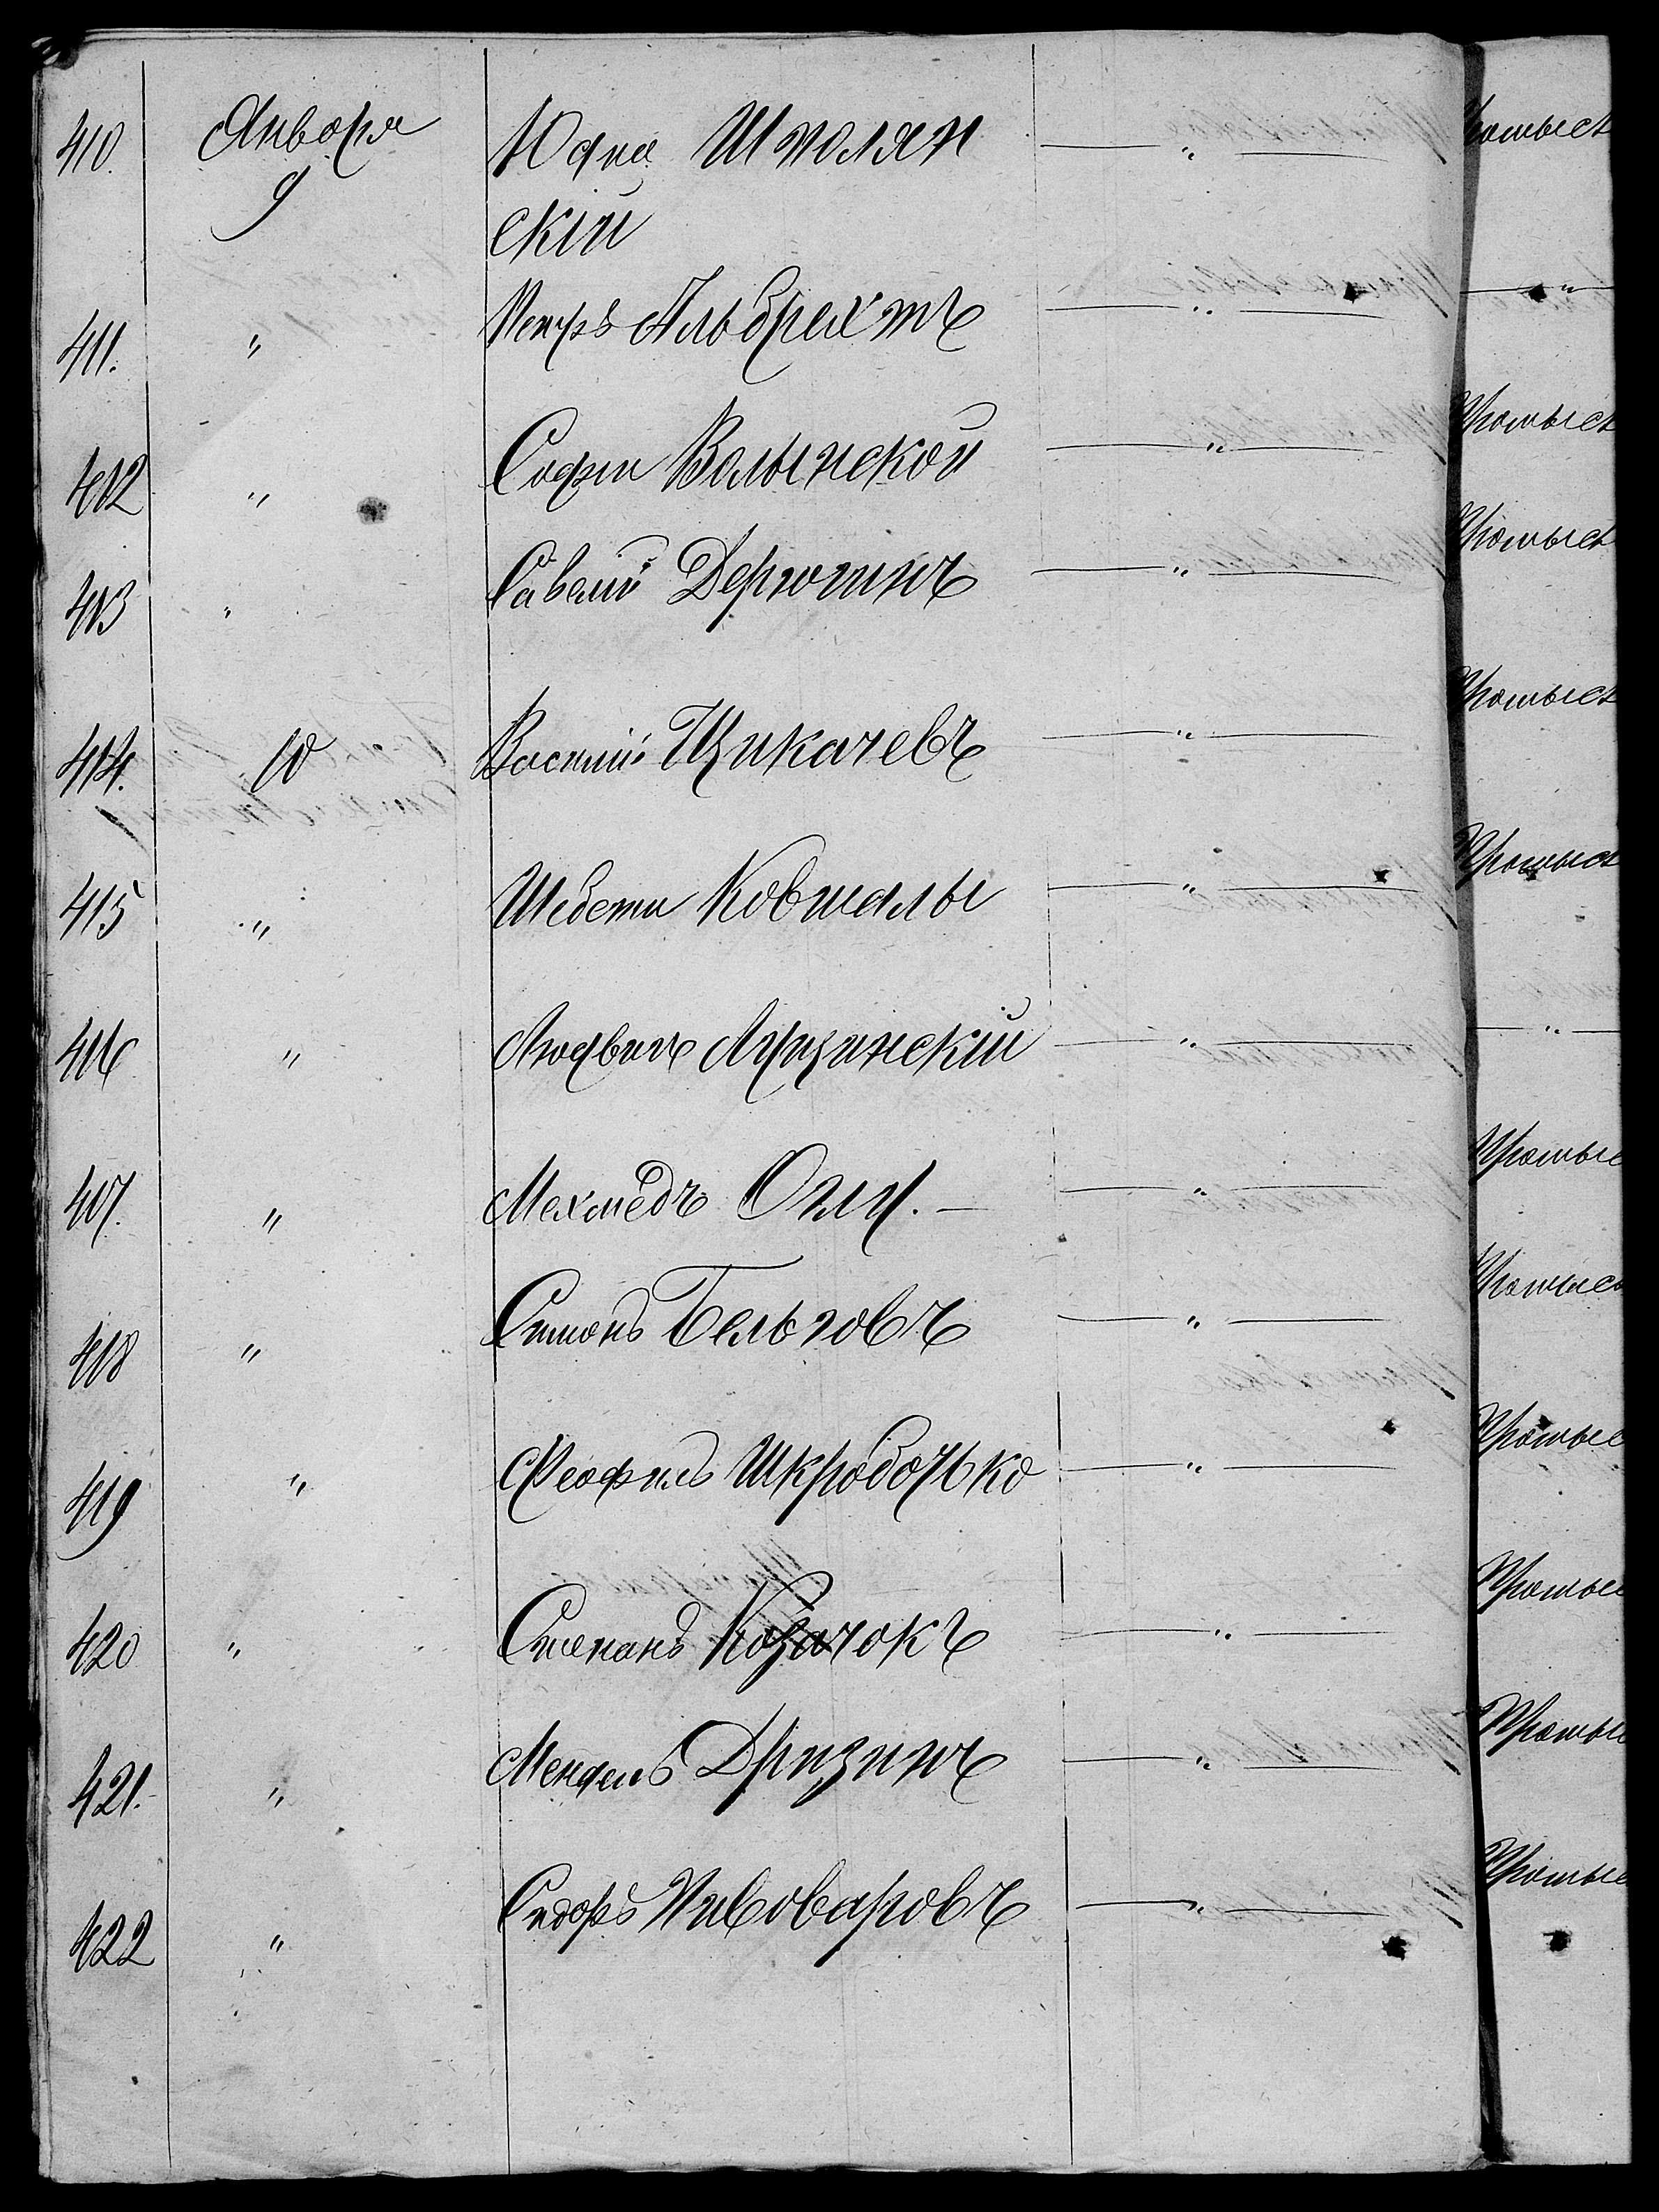 410. Января Юдка Шполян — " — Промысл
9 скій
411. " Петръ Альбрехтъ — " — — " —
412 " Софіи Волынской — " — Промысл
413 " Савелій Дерюгинъ — " — Промысл
414. 10 Василій Цикачевъ — " — Промысл
415 " Шебети Ковшалы — " — Промысл
416 " Людвигъ Луцинскій — " — — " —
417. " Мехмедъ Оглу. — — " — Промыс
418 " Симонъ Бельговъ — " — Промыс
419 " Феофилъ Шкробочко — " — Промыс
420 " Степанъ Козачокъ — " — Промыс
421. " Мендель Дризинъ — " — Промыс
422 " Сидоръ Пивоваровъ — " — Промыс